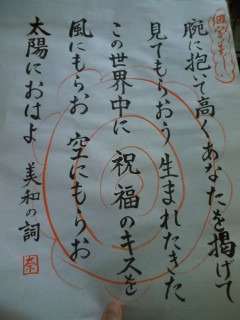 腕に抱いて高くあなたを掲げて
見てもらおう 生まれたきた
この世界中に 祝福のキスを
風にもらお 空にもらお
太陽におはよ 美和の詞
奈